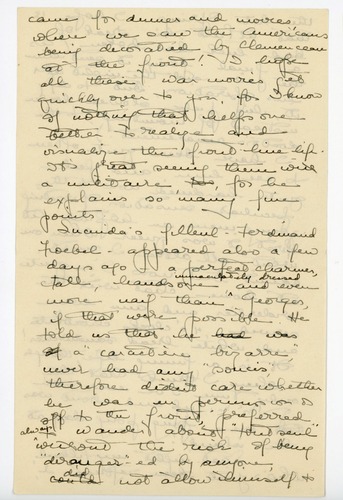 came for dinner and movies
where we saw the Americans
being decorated by Clemenceau
at the front! I hope
all these war movies get
quickly over to you, for I know
of nothing that helps one
better to realize and
visualize the front-line life.
It's great seeing them with
a militaire for he
explains so many fine
points.
Lucinda's filleul - Ferdinand
Foebel - appeared also a few
days ago - a perfect charmer,
tall, handsome, immaculately dressed and even
more naif than Georges,
if that were possible. He
told us that he had was
of a "caractère bizarre"
never had any "soucis,"
therefore didn't care whether
he was in permission or
off to the front, preferred
always to wander about "tout seul"
without the risk of being
"deranger"-ed by anyone,
could did not allow himself to